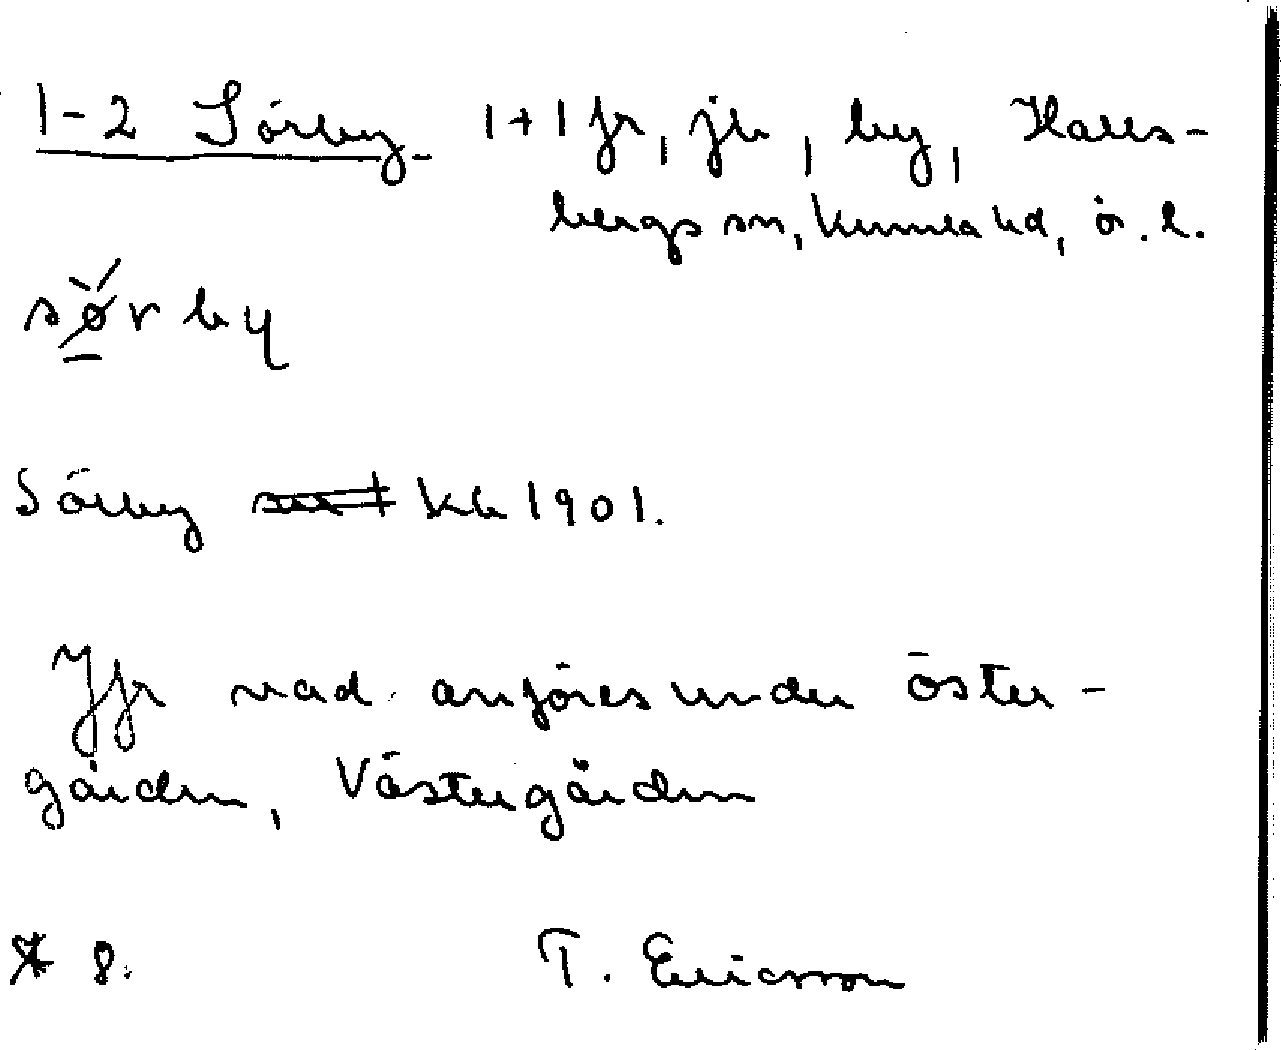 1-2 Sörby. 1+1 fr, jb, by, Halls-
bergs sn, Kumla hd, ör. l.
sø̀rby
Sörby kb 1901.
Jfr vad anföres under öster-
gården, Västergården
8. T. Ericsson